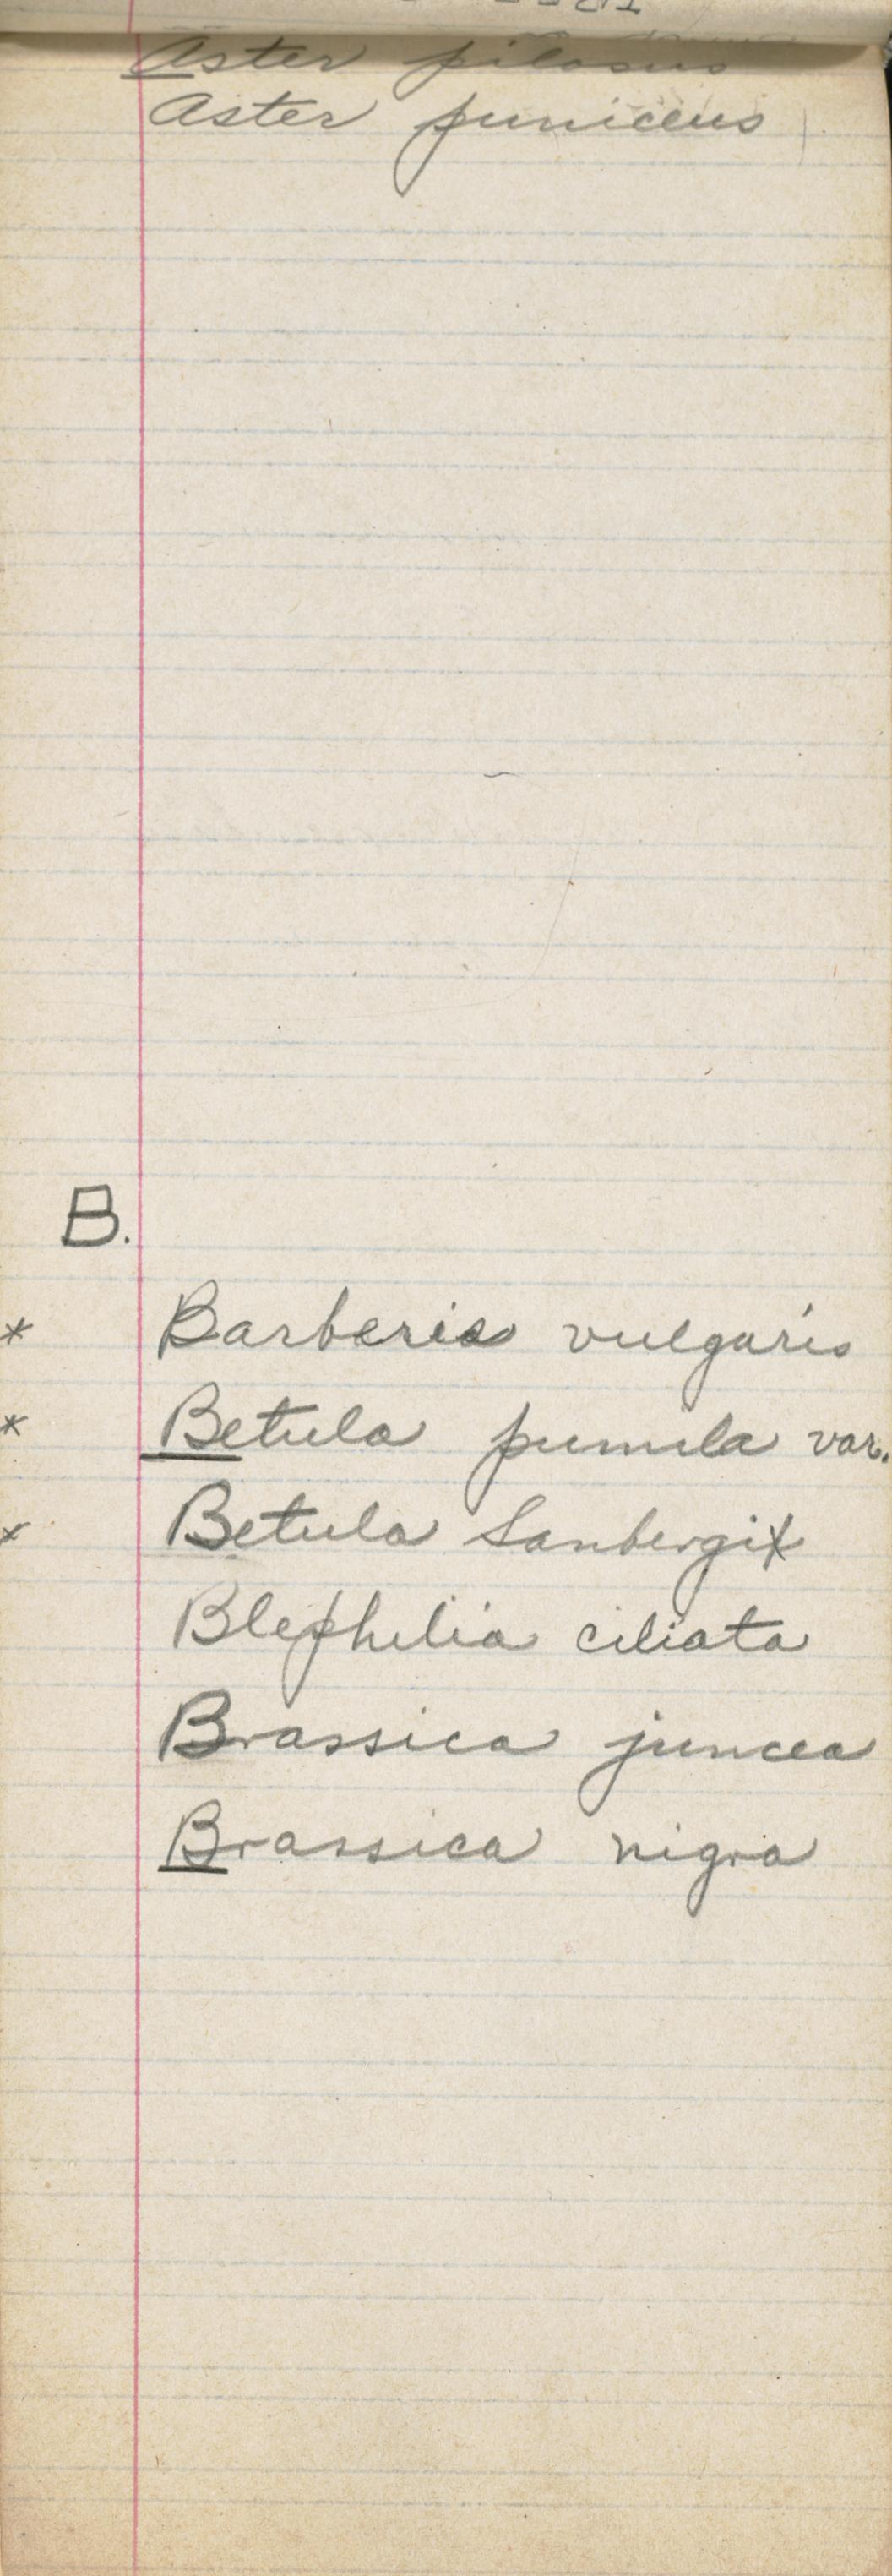 Aster pilosus
Aster puniceus
B.
* Barberis vulgaris
* Betula pumila var.
x Betula Sanbergix
Blephilia ciliata
Brassica juncea
Brassica nigra